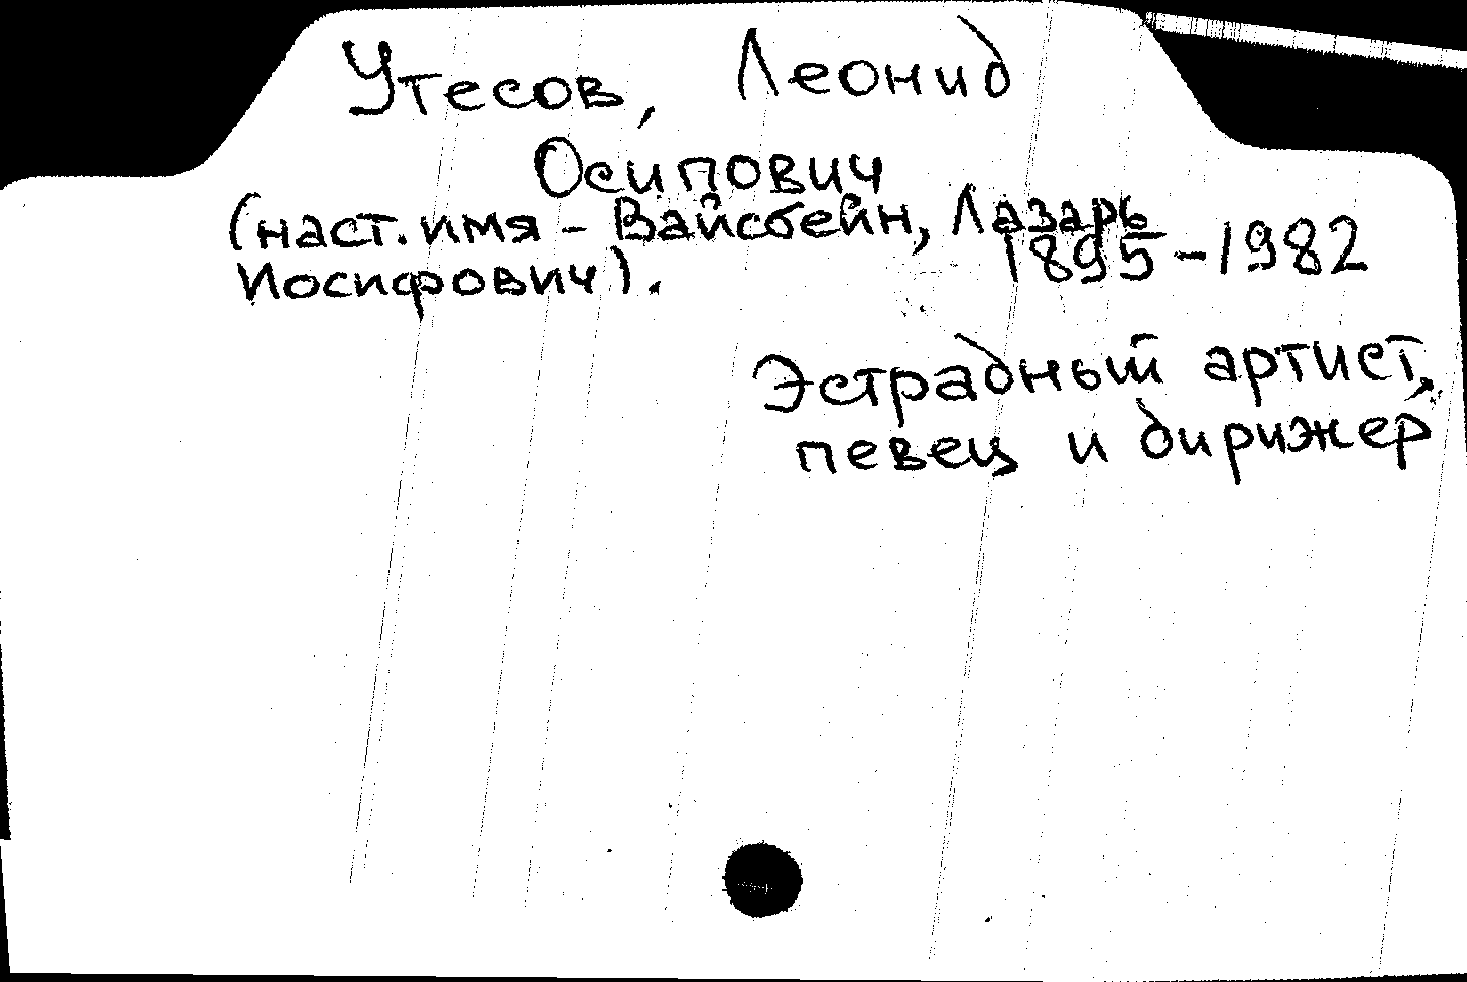 Утесов, Леонид
Осипович
(наст. имя - Вайсбейн, Лазарь
Иосифович).
1895-1982
Эстрадный артист,
певец и дирижер